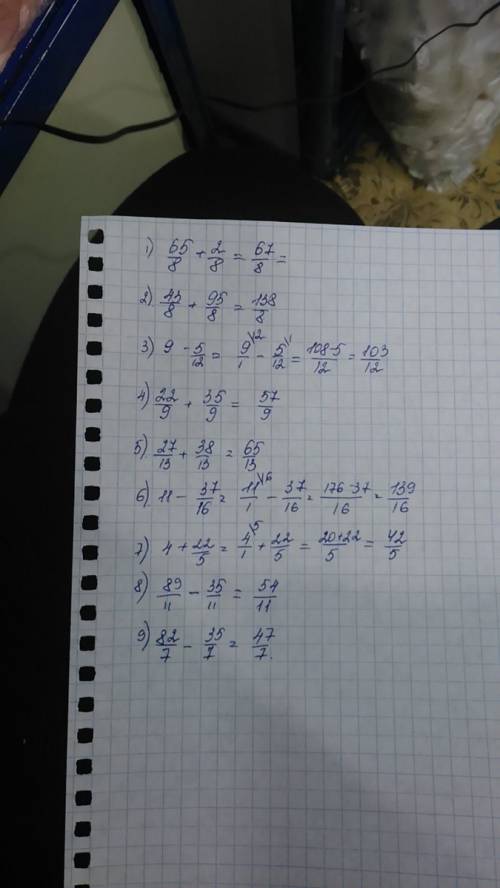 1) 65/8 + 2/8 = 67/8 =
2) 43/8 + 95/8 = 138/8
3) 9 - 5/12 = 9\12/1 - 5\1/12 = 108-5/12 = 103/12
4) 22/9 + 35/9 = 57/9
5) 27/13 + 38/13 = 65/13
6) 11 - 37/16 = 11\16/1 - 37/16 = 176-37/16 = 139/16
7) 4 + 22/5 = 4\5/1 + 22/5 = 20+22/5 = 42/5
8) 89/11 - 35/11 = 54/11
9) 82/7 - 35/7 = 47/7.